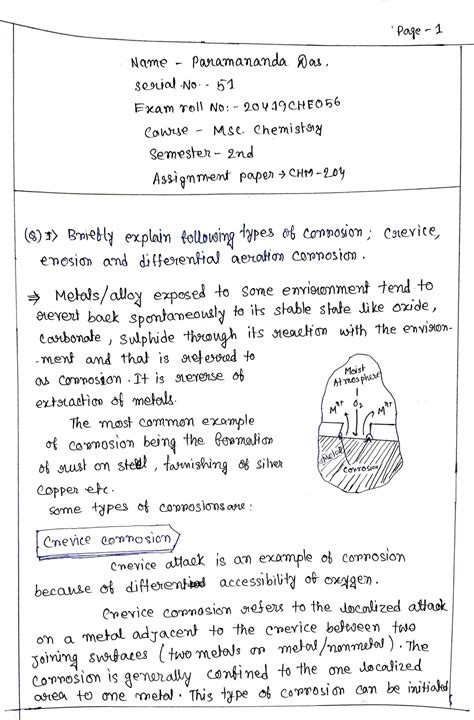 Page - 1
Name - Paramananda Das.
serial No. - 51
Exam roll No: - 20419CHE056
Course - Msc. Chemistry
Semester - 2nd
Assignment paper → CHM-204
(Q) 1> Briefly explain following types of corrosion; Crevice,
erosion and differential aeration corrosion.
⇒ Metals/alloy exposed to some environment tend to
revert back spontaneously to its stable state like oxide,
carbonate, sulphide through its reaction with the environ-
-ment and that is referred to
as corrosion. It is reverse of
extraction of metals.
Moist
Atmosphere
Mn+ O2 Mn+
Metal
corrosion
The most common example
of corrosion being the formation
of rust on steel, tarnishing of silver
copper etc.
some types of corrosions are:
Crevice corrosion
Crevice attack is an example of corrosion
because of different accessibility of oxygen.
Crevice corrosion refers to the localized attack
on a metal adjacent to the crevice between two
joining surfaces (two metals or metal/nonmetal). The
corrosion is generally confined to the one localized
area to one metal. This type of corrosion can be initiated